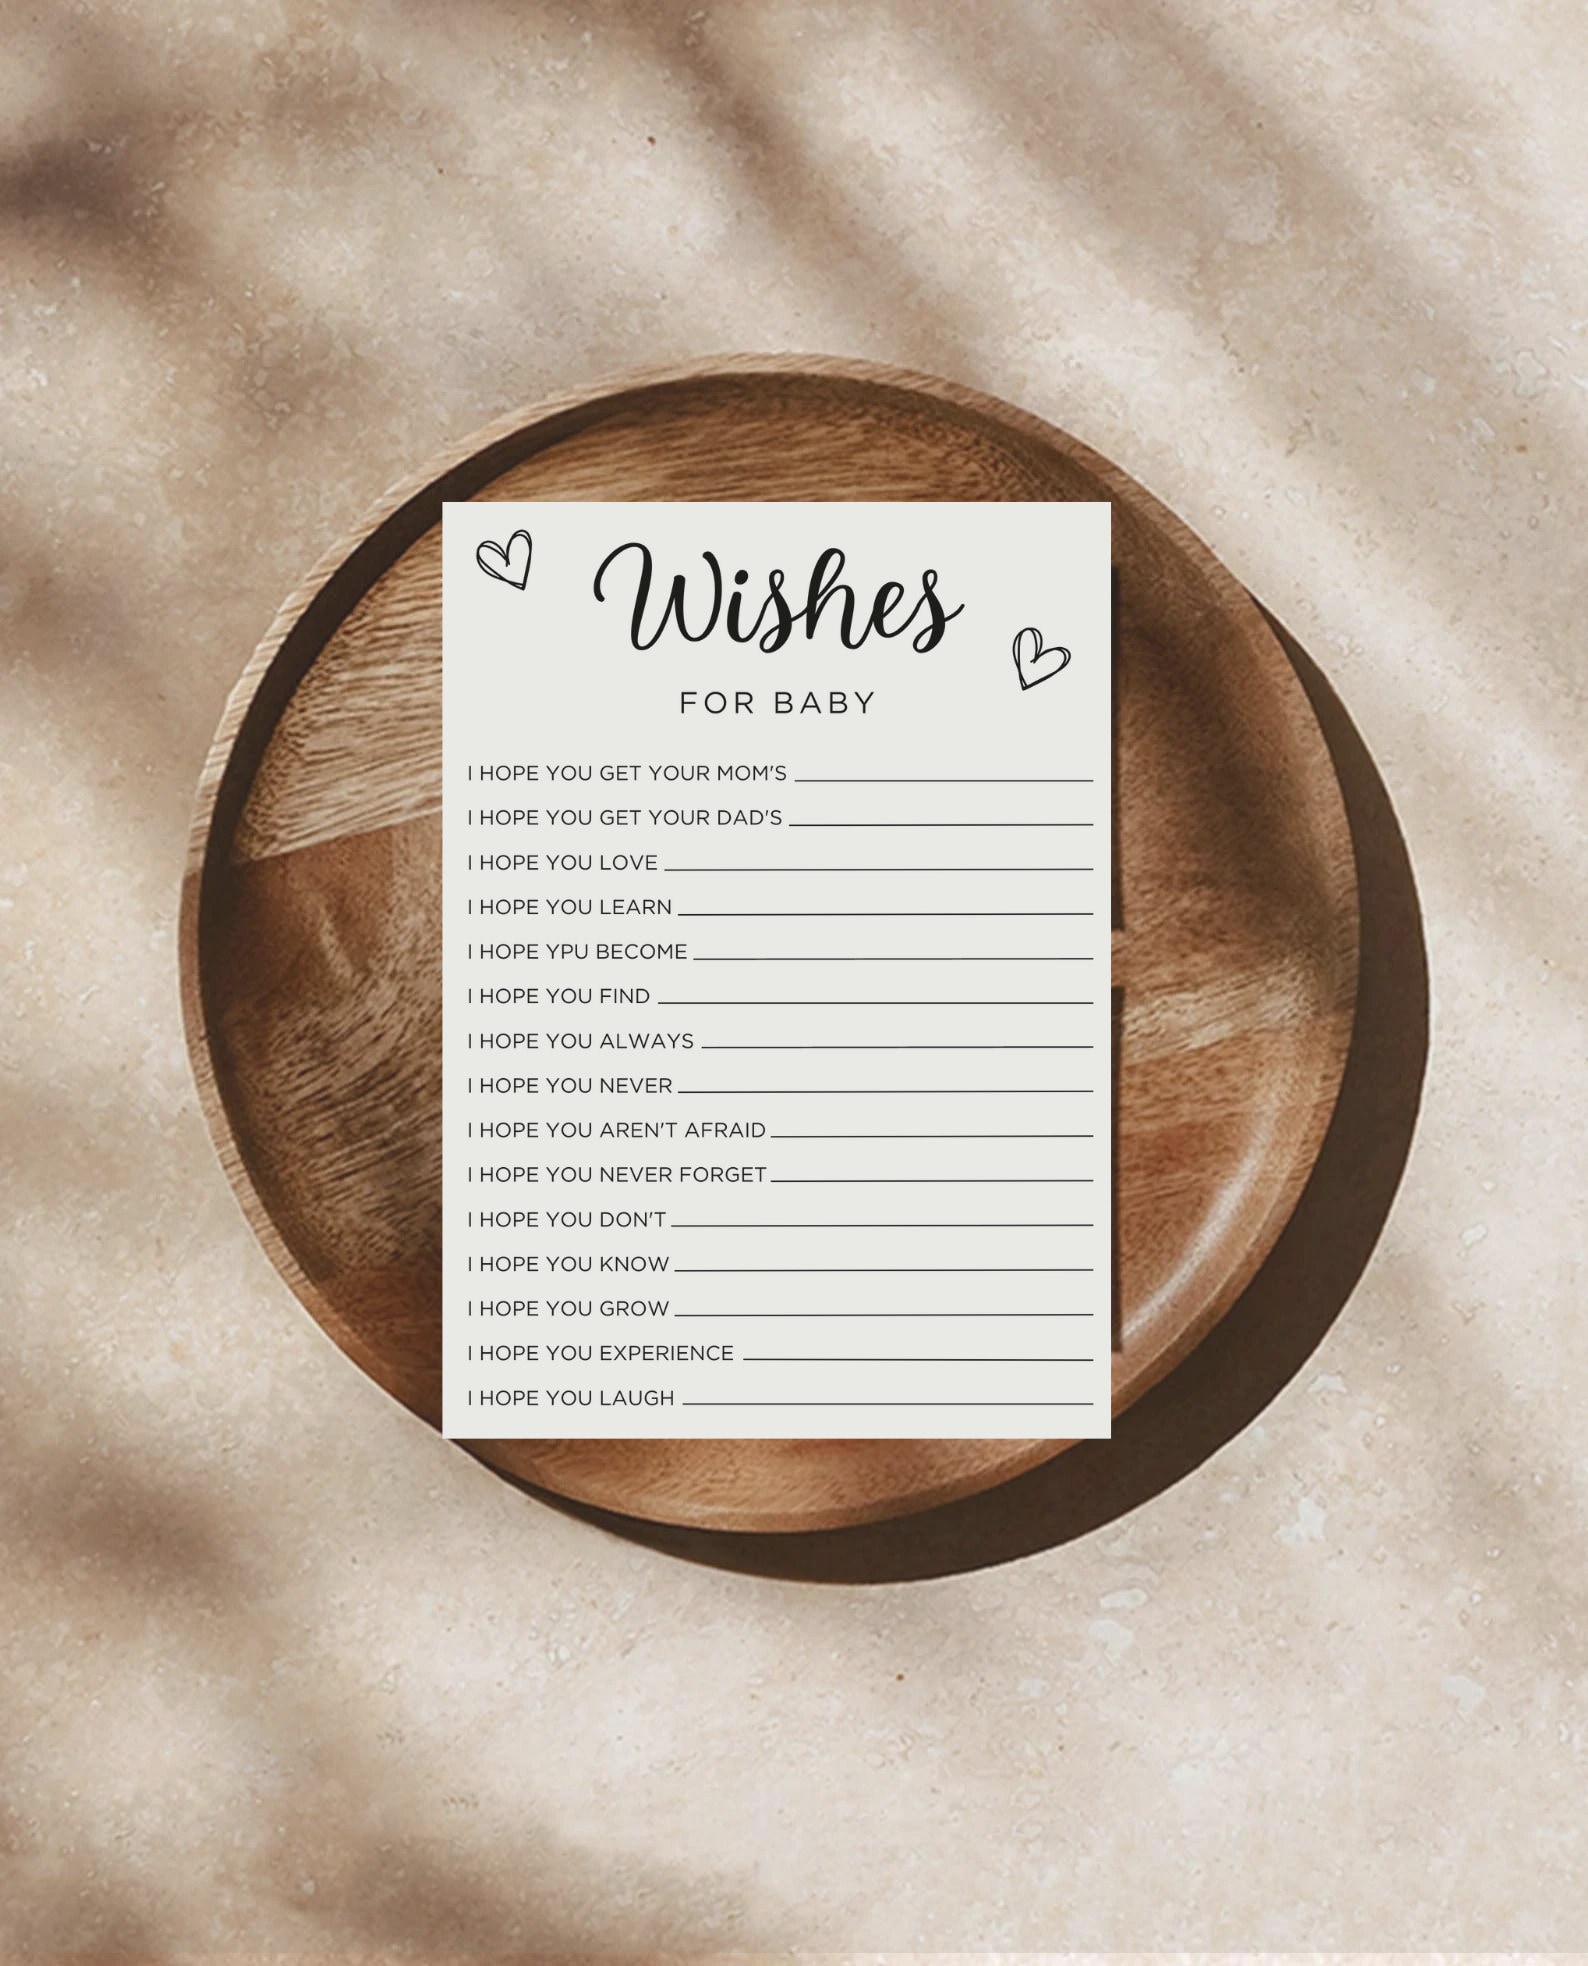 Wishes
FOR BABY
I HOPE YOU GET YOUR MOM'S
I HOPE YOU GET YOUR DAD'S
I HOPE YOU LOVE
I HOPE YOU LEARN
I HOPE YPU BECOME
I HOPE YOU FIND
I HOPE YOU ALWAYS
I HOPE YOU NEVER
I HOPE YOU AREN'T AFRAID
I HOPE YOU NEVER FORGET
I HOPE YOU DON'T
I HOPE YOU KNOW
I HOPE YOU GROW
I HOPE YOU EXPERIENCE
I HOPE YOU LAUGH